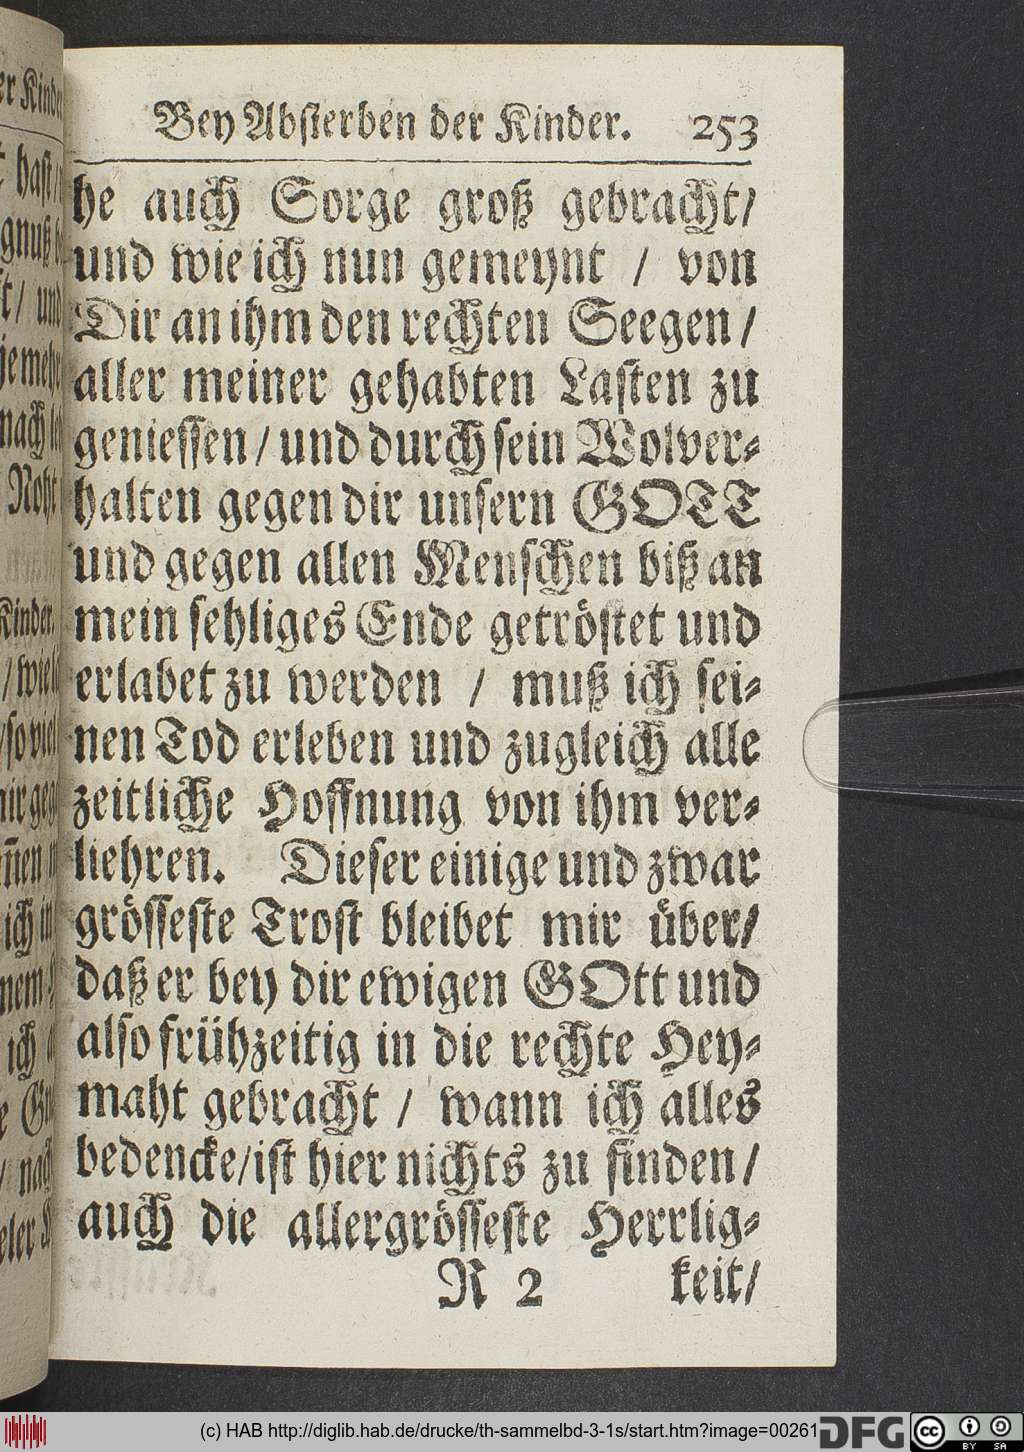 Bey Absterben der Kinder. 253
he auch Sorge groß gebracht/
und wie ich nun gemeynt / von
Dir an ihm den rechten Seegen/
aller meiner gehabten Lasten zu
geniessen/ und durch sein Wolver-
halten gegen dir unsern GOTT
und gegen allen Menschen biß an
mein sehliges Ende getröstet und
erlabet zu werden / muß ich sei-
nen Tod erleben und zugleich alle
zeitliche Hoffnung von ihm ver-
liehren. Dieser einige und zwar
grösseste Trost bleibet mir über/
daß er bey dir ewigen GOtt und
also frühzeitig in die rechte Hey-
maht gebracht / wann ich alles
bedencke/ist hier nichts zu finden/
auch die allergrösseste Herrlig-
R 2 keit/
(c) HAB http://diglib.hab.de/drucke/th-sammelbd-3-1s/start.htm?image=00261
DFG cc BY SA